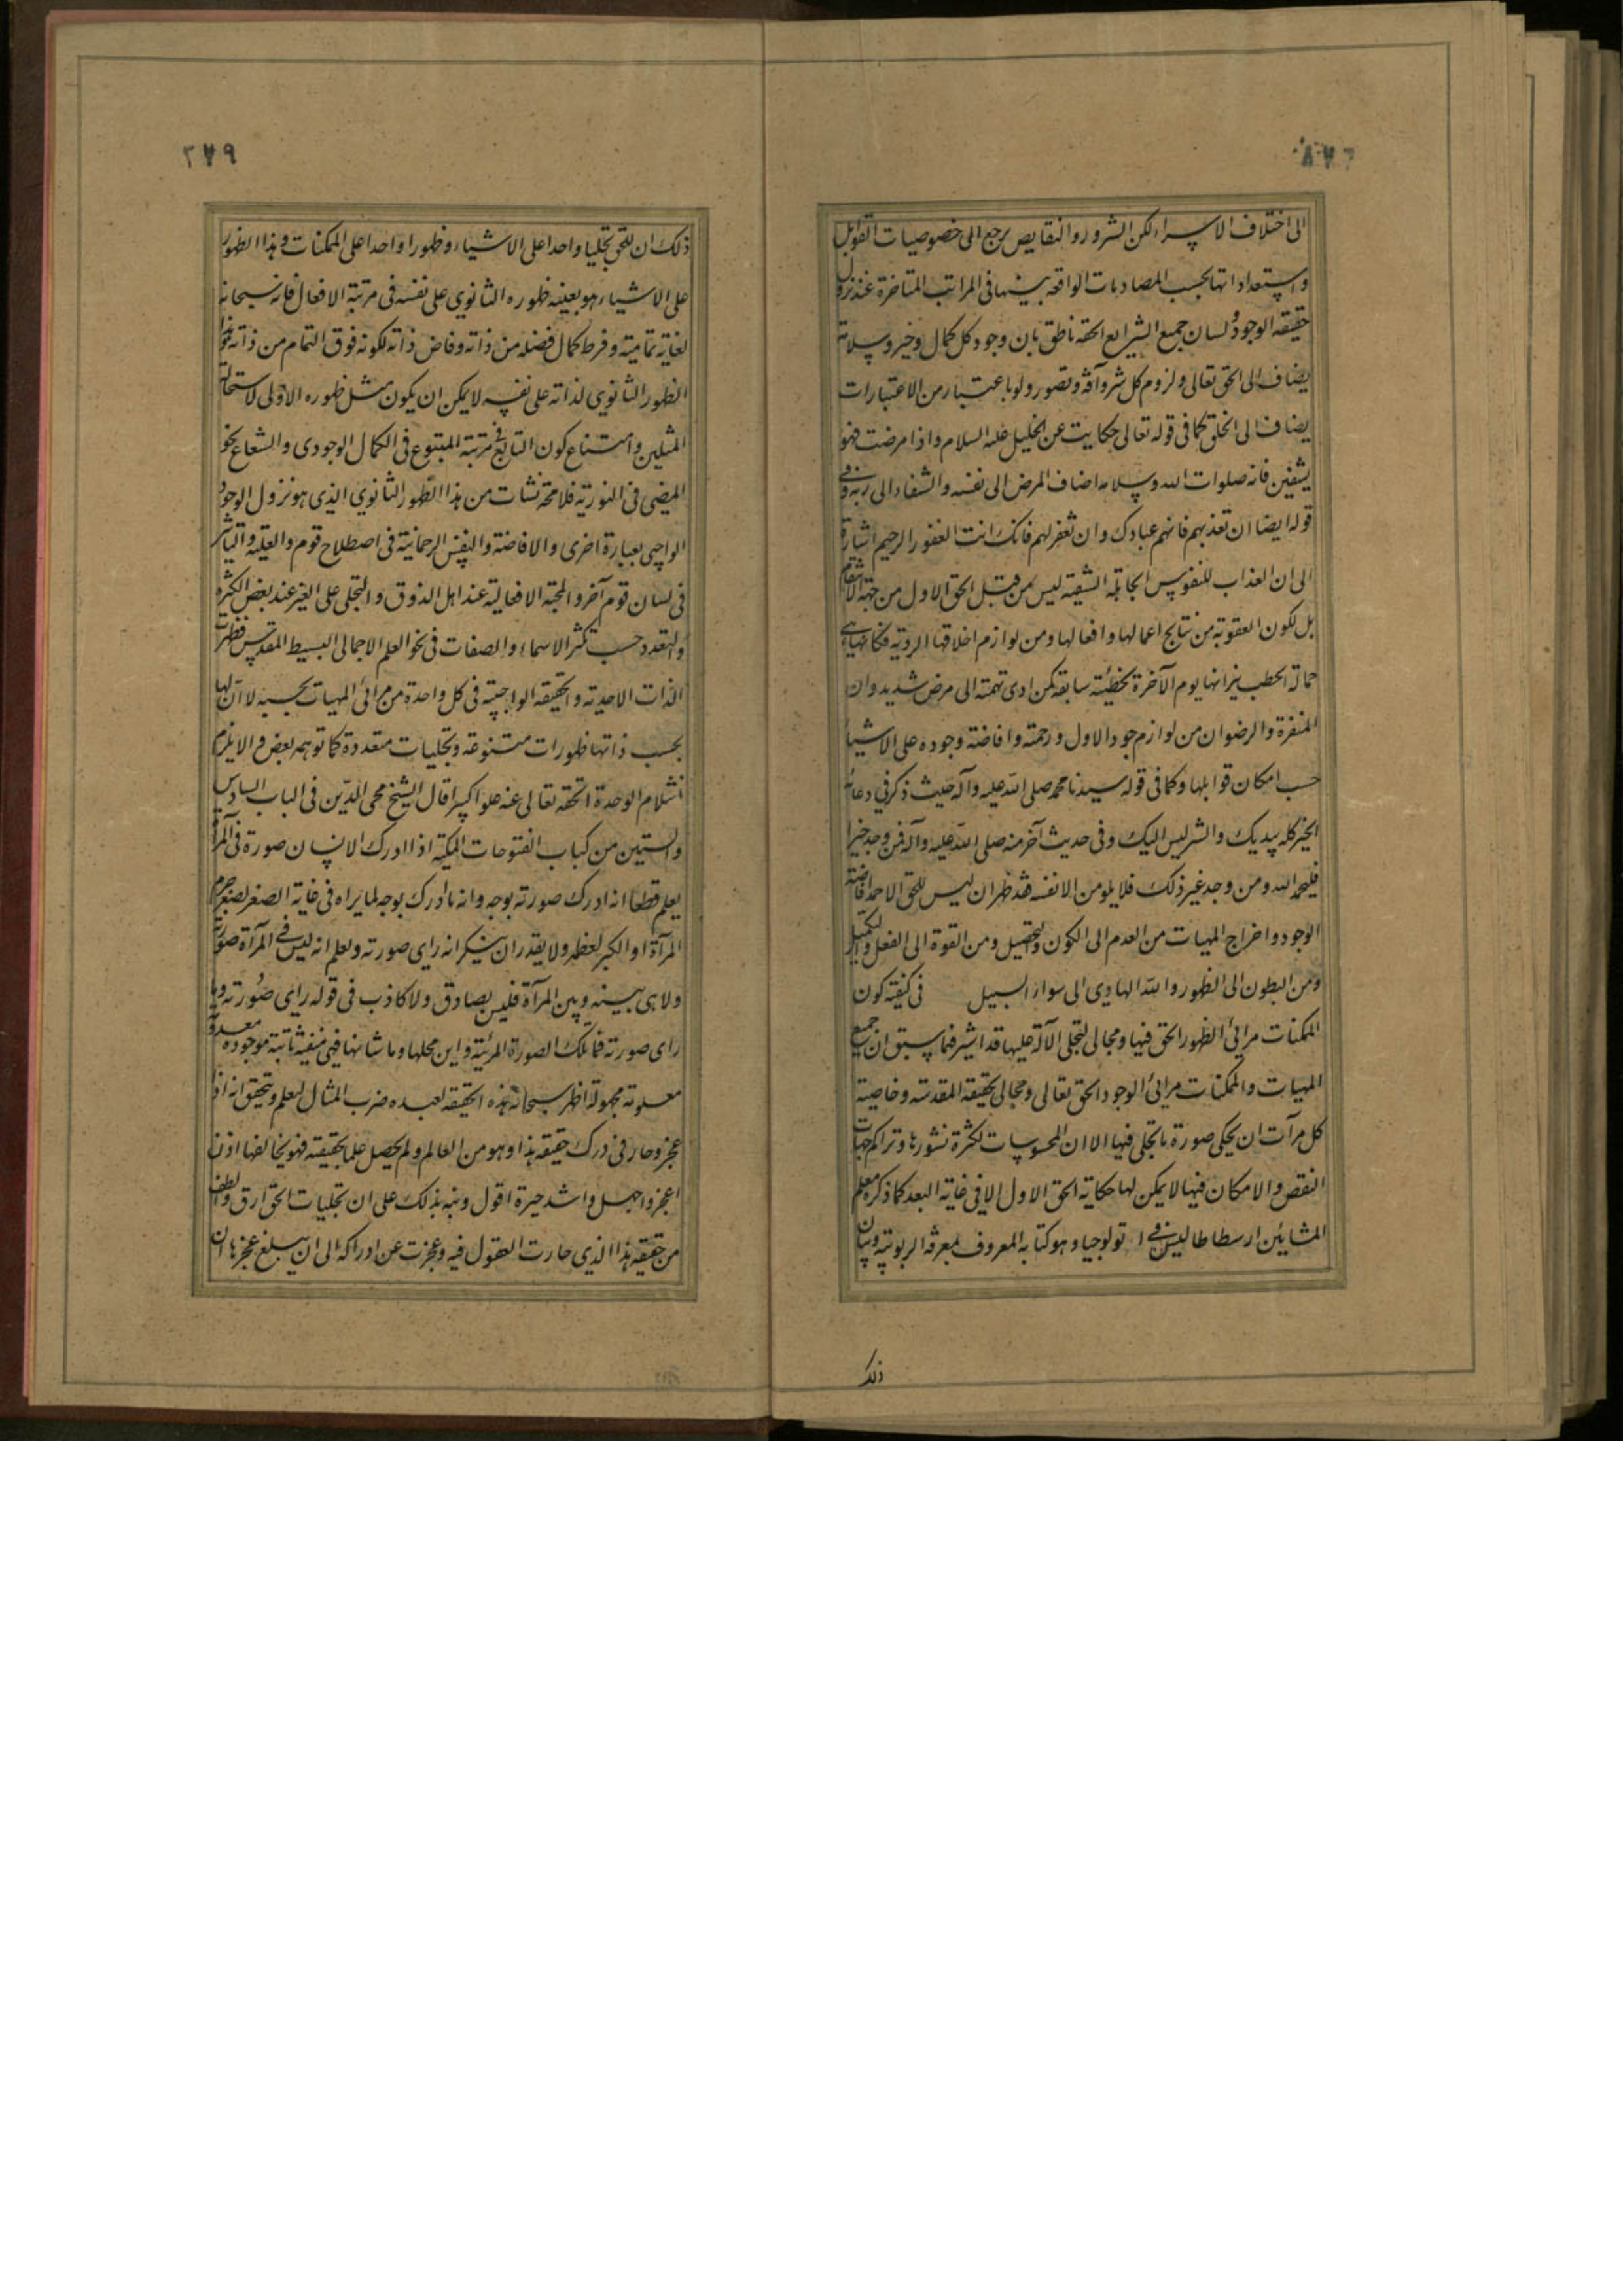 الى اختلاف الاسراء لكن الشرور والنقايص يرجع الى خصوصيات القوابل
واستعداداتها بحسب المصادمات الواقعة بينها فى المراتب المتاخرة عند نزول
حقيقه الوجود ولسان جميع الشرايع الحقه ناطق بان وجود كل كمال وخير وسلامة
يضاف الى الحق تعالى ولزوم كل شر وآفة وقصور ولو باعتبار من الاعتبارات
يضاف الى الخلق كما فى قوله تعالى حكايت عن الخليل عليه السلام واذا مرضت فهو
يشفين فانه صلوات الله وسلامه اضاف المرض الى نفسه والشفاء الى ربه وفى
قوله ايضا ان تعذبهم فانهم عبادك وان تغفر لهم فانك انت الغفور الرحيم اشارة
الى ان العذاب للنفوس الجاهلة الشقية ليس من قبل الحق الاول من جهة الانتقام
بل لكون العقوبة من نتايج اعمالها وافعالها ومن لوازم اخلاقها الردية فكانها هى
حمالة الحطب نيرانها يوم الآخرة لخطيئة سابقه كمن ادى نهمته الى مرض شديد وان
المغفرة والرضوان من لوازم جود الاول ورحمته وافاضة وجوده على الاشياء
حسب امكان قوابلها وكما فى قوله سيدنا محمد صلى الله عليه وآله حيث ذكر فى دعائه
الخير كله بيديك والشر ليس اليك وفى حديث آخر منه صلى الله عليه وآله فمن وجد خيرا
فليحمد الله ومن وجد غير ذلك فلا يلومن الا نفسه فقد ظهر ان ليس للحق الا حمد افاضة
الوجود واخراج المهيات من العدم الى الكون والتحصيل ومن القوة الى الفعل والتكميل
ومن البطون الى الظهور والله الهادى الى سواء السبيل فى كيفية كون
الممكنات مرائى لظهور الحق فيها ومجالى لتجلى الآله عليها قد اشير فيما سبق ان جميع
المهيات والممكنات مرائى الوجود الحق تعالى ومجالى لحقيقته المقدسه وخاصية
كل مرآت ان يحكى صورة ما تجلى فيها الا ان المحسوسات لكثرة قشورها وتراكم جهات
النقص والامكان فيها لا يمكن لها حكاية الحق الاول الا فى غاية البعد كما ذكره معلم
المشايئن ارسطاطاليس فى اتولوجيا وهو كتابه المعروف بمعرفة الربوبية وبيان
ذلك
٢٧٩
ذلك ان للحق تجليا واحدا على الاشياء وظهورا واحدا على الممكنات وهذا الظهور
على الاشياء هو بعينه ظهوره الثانوي على نفسه فى مرتبة الافعال فانه سبحانه
لغاية تماميته وفرط كمال فضله من ذاته وفاض ذاته لكونه فوق التمام من ذاته وهذا
الظهور الثانوى لذاته على نفسه لا يمكن ان يكون مثل ظهوره الاولى لاستحالة
المثلين وامتناع كون التابع فى مرتبة المتبوع فى الكمال الوجودى والشعاع نحو
المضى فى النورية فلا محة نشات من هذا الظهور الثانوي الذى هو نزول الوجود
الواجبى بعبارة اخرى والافاضة والنفس الرحمانية فى اصطلاح قوم والعلية والتاثير
فى لسان قوم آخر والمحبة الافعالية عند اهل الذوق والتجلى على الغير عند بعض الكثرة
والتعدد حسب تكثر الاسماء والصفات فى نحو العلم الاجمالى البسيط المقدس فظهرت
الذات الاحدية والحقيقه الواجبية فى كل واحدة من مرائى المهيات بحسبه لا ان لها
بحسب ذاتها ظهورات متنوعة وتجليات متعددة كما توهمه بعض والا يلزم
انثلام الوحدة الحقه تعالى عنه علوا كبيرا قال الشيخ محى الدين فى الباب السادس
والستين من كتاب الفتوحات المكية اذا ادرك الانسان صورة فى المرآة
يعلم قطعا انه ادرك صورته بوجه وانه ما ادرك بوجه لما يراه فى غاية الصغر لصغر جرم
المرآة او الكبر لعظمه ولا يقدر ان ينكر انه راى صورته ويعلم انه ليس فى المرآة صورته
ولا هى بينه وبين المرآة فليس بصادق ولا كاذب فى قوله راى صورته وما
راى صورته فما تلك الصورة المرئية واين محلها وما شانها فهى منفية ثابتة موجوده معدومة
معلومة مجهولة اظهر سبحانه هذه الحقيقه لعبده ضرب المثال ليعلم ويتحقق انه اذا
عجز وحار فى درك حقيقه هذا وهو من العالم ولم يحصل علما بحقيقته فهو بخالقها اذن
اعجز واجهل واشد حيرة اقول ونبه بذلك على ان تجليات الحق ارق والطف
من حقيقه هذا الذي حارت العقول فيه وعجزت عن ادراكه الى ان يبلغ عجزها ان